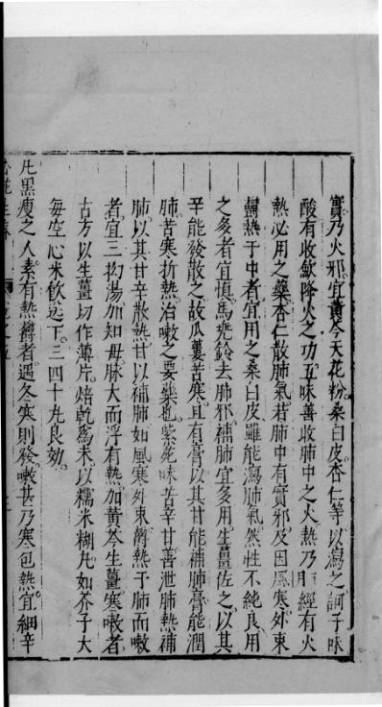 實乃火邪宜黃芩天花粉桑白皮杏仁等以瀉之訶子味
酸有收斂降火之功五味善收肺中之火熱乃肺經有火
熱必用之藥杏仁散肺氣若肺中有實邪及因風寒外束
鬱熱于中者宜用之桑白皮雖能瀉肺氣然性不純良用
之多者宜慎馬兜鈴去肺邪補肺宜多用生薑佐之以其
辛能發散之故瓜蔞苦寒且有膏以其甘能補肺膏能潤
肺苦寒折熱治嗽之要藥也紫菀味苦辛甘善泄肺熱補
肺以其甘辛散熱甘以補肺如風寒外束鬱熱于肺而嗽
者宜三拗湯加知母脉大而浮有熱加黃芩生薑寒嗽者
古方以生薑切作薄片焙乾為末以糯米糊丸如芥子大
每空心米飲送下三四十丸良効
凡黑瘦之人素有熱鬱者遇冬寒則發嗽甚乃寒包熱宜細辛